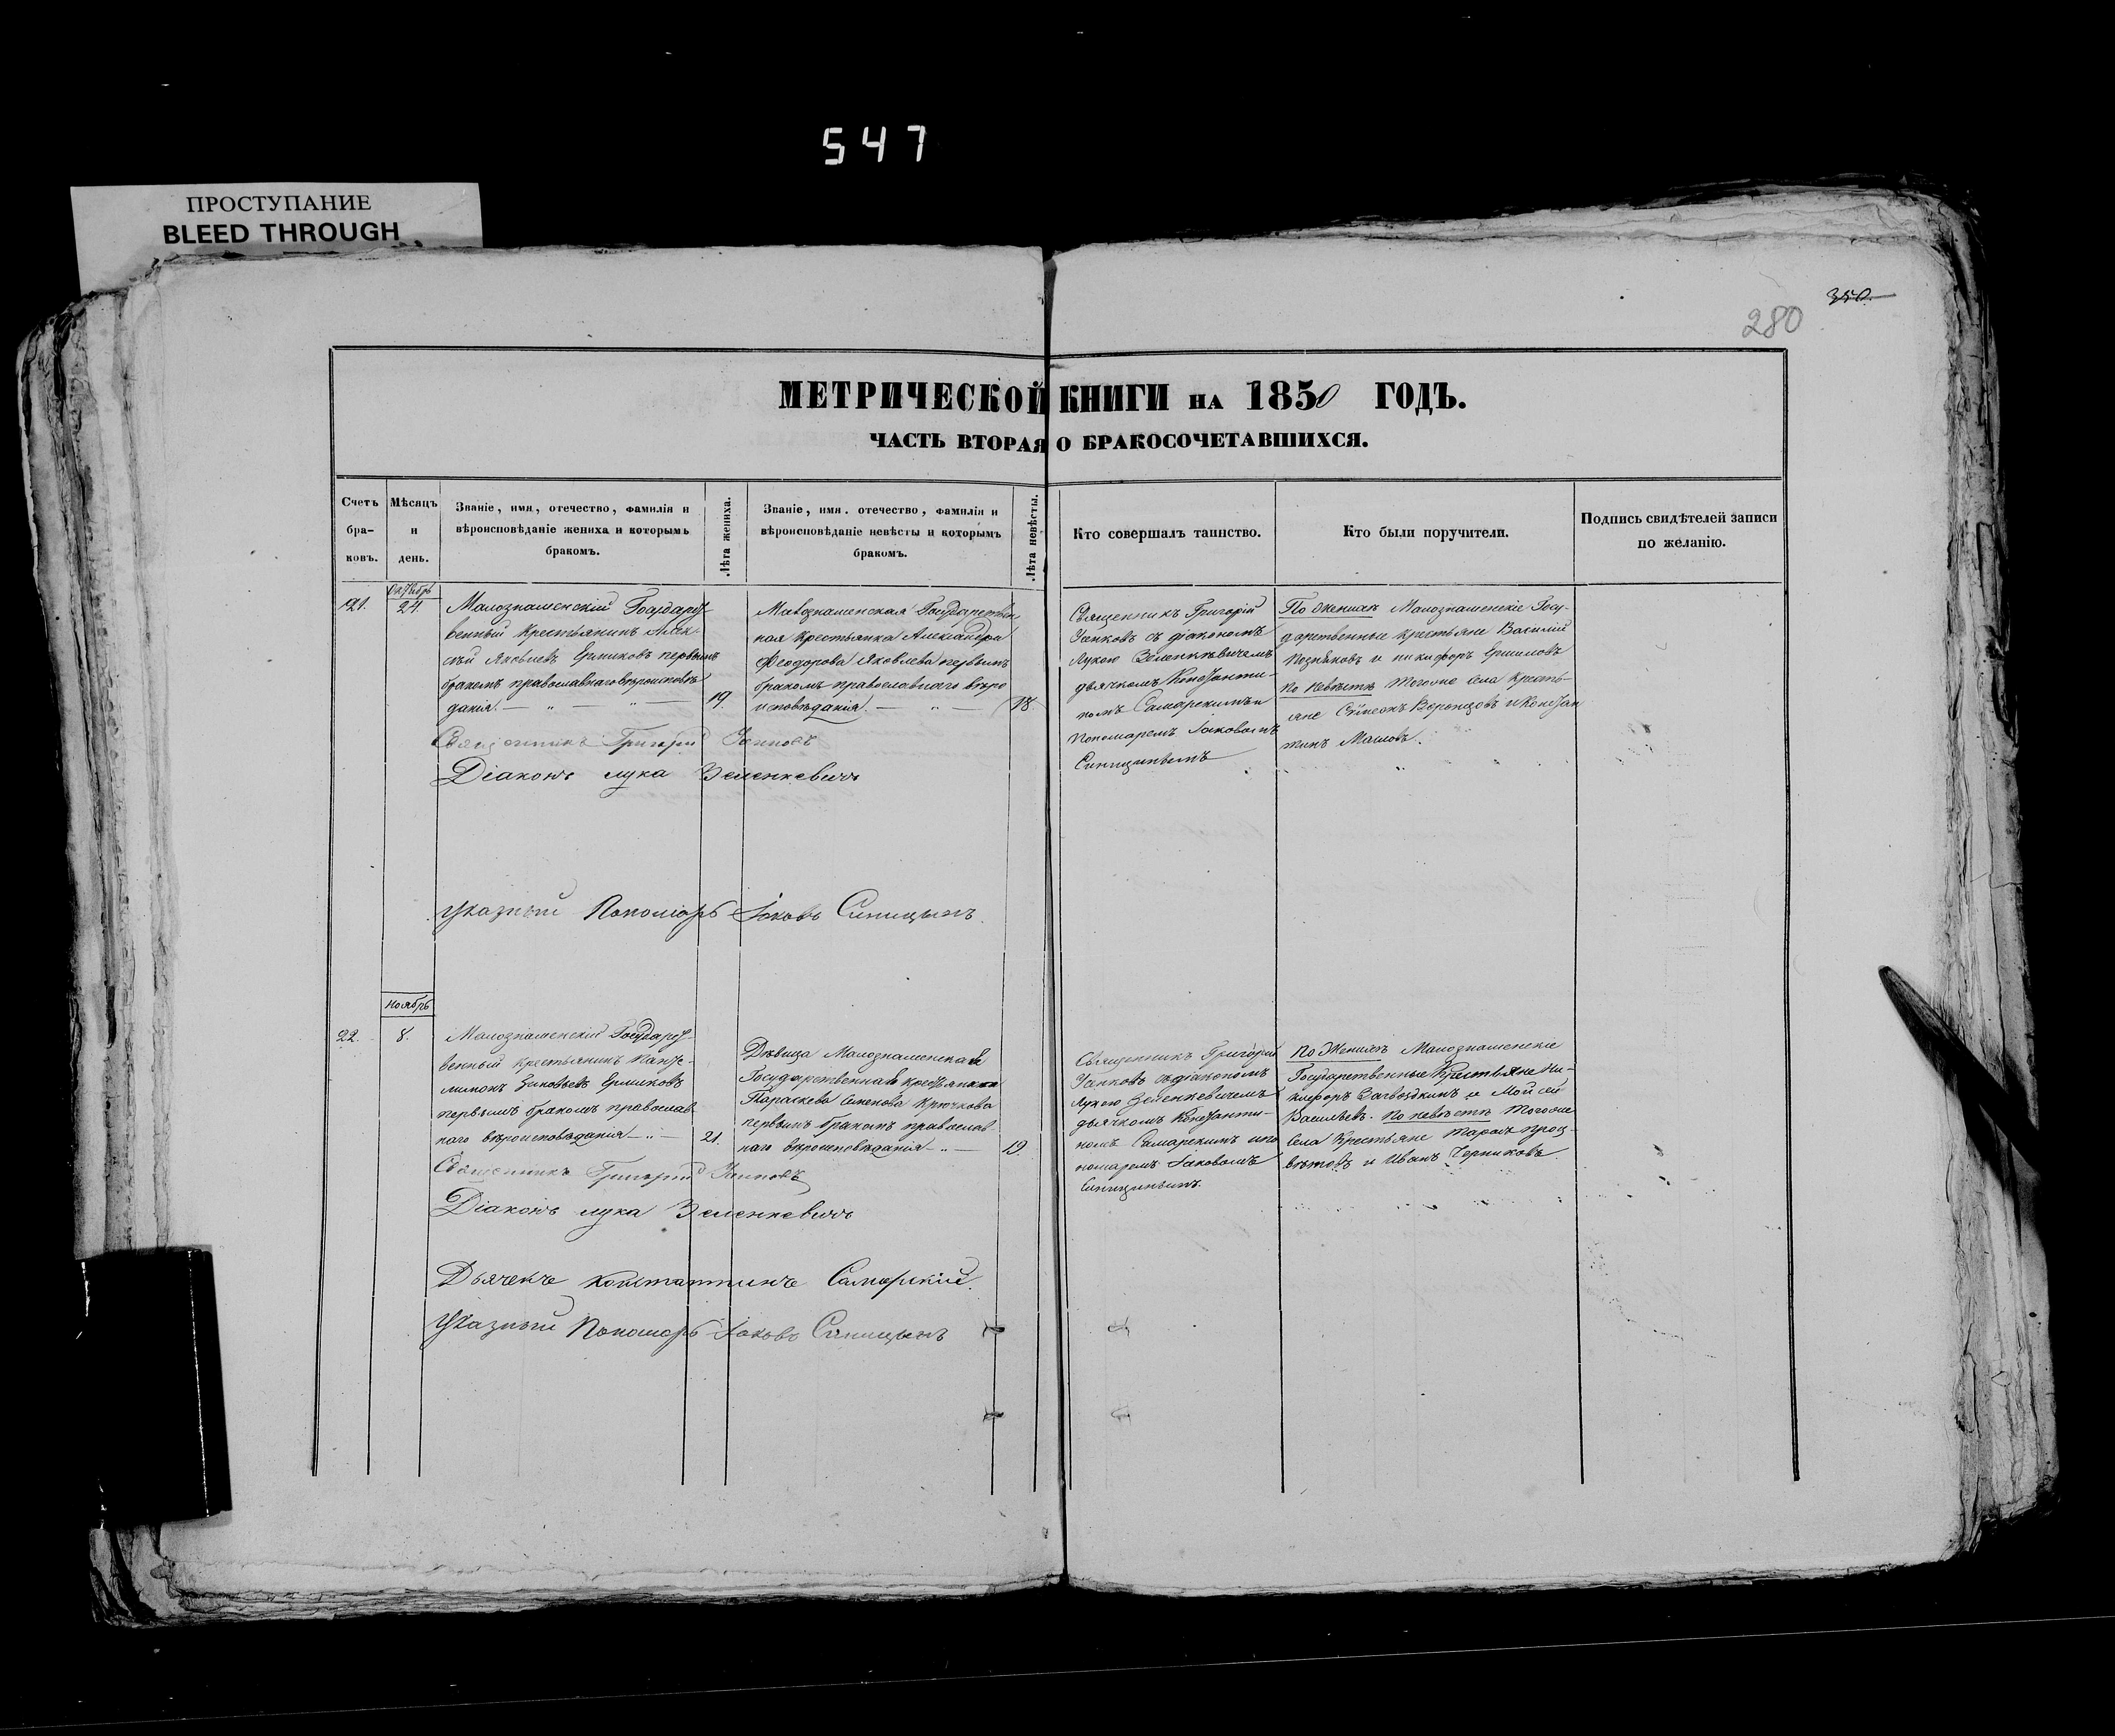 547
ПРОСТУПАНИЕ
BLEED THROUGH
350.
280
МЕТРИЧЕСКОЙ КНИГИ НА 1850 ГОДЪ.
ЧАСТЬ ВТОРАЯ О БРАКОСОЧЕТАВШИХСЯ.
Счетъ браковъ.
Мѣсяцъ и день.
Званіе, имя, отечество, фамилія и
вѣроисповѣданіе жениха и которымъ
бракомъ.
Лѣта жениха.
Званіе, имя. отечество, фамилія и
вѣроисповѣданіе невѣсты и которымъ
бракомъ.
Лѣта невѣсты.
Кто совершалъ таинство.
Кто были поручители.
Подпись свидѣтелей записи
по желанію.
21.
Октябрь
24
Малознаменскій Государст-
венный Крестьянинъ Алек-
сѣй Яковлевъ Ермиковъ первымъ
бракомъ православнаго вѣроисповѣ
данія.
19.
Малознаменская Государствен
ная Крестьянка Александра
Феодорова Яковлева первымъ
бракомъ православнаго вѣро
исповѣданія.
18.
Священникъ Григорій
съ діакономъ
Лукою Зеленкевичемъ
дьячкомъ Константи-
номъ Самарскимъ и
Пономаремъ Іаковомъ
Синицинымъ
По Женихѣ Малознаменскіе Госу-
дарственные крестьяне Василій
Позняковъ и никифоръ
По Невѣстѣ тогоже села крестья-
яне Симеонъ Воронцовъ и Констан
тинъ Масловъ.
Священникъ Григорій
Діаконъ лука Зеленкевичъ
Указный Пономарь Іаковъ Синицынъ.
22.
Ноябрь
8.
Малознаменскій Государст-
венный крестьянинъ Панте-
лимонъ Зиновьевъ Ермиковъ
первымъ бракомъ православ-
наго вѣроисповѣданія
21.
Дѣвица Малознаменская
Государственная крестьянка
Параскева Семенова Крючкова
первымъ бракомъ православ-
наго вѣроисповѣданія
19.
Священникъ Григорій
съ діакономъ
Лукою Зеленкевичемъ
дьячкомъ Константи-
номъ Самарскимъ и по
номаремъ Іаковомъ
Синицинымъ.
По Женихѣ Малознаменскіе
Государственные Крестьяне Ни-
кифоръ и Мойсей
Васильевъ. По невѣстѣ тогоже
села Крестьяне Тарасъ Проц-
вѣтовъ и Иванъ Черниковъ.
Священникъ Григорій
Діаконъ лука Зеленкевичъ
Дьячекъ Константинъ Самарскій.
Указный Пономарь Іаковъ Синицынъ